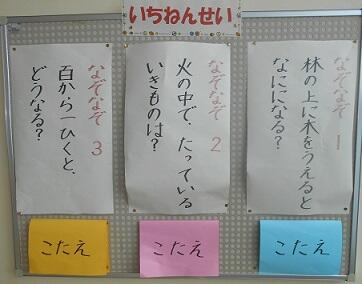 いちねんせい
なぞなぞ 1
林の上に木をうえると
なにになる?
なぞなぞ 2
火の中で、たっている
いきものは?
なぞなぞ 3
百から一ひくと、
どうなる?
こたえ
こたえ
こたえ